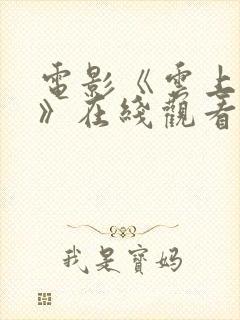 電影《雲上
》在綫觀看
我是寶媽